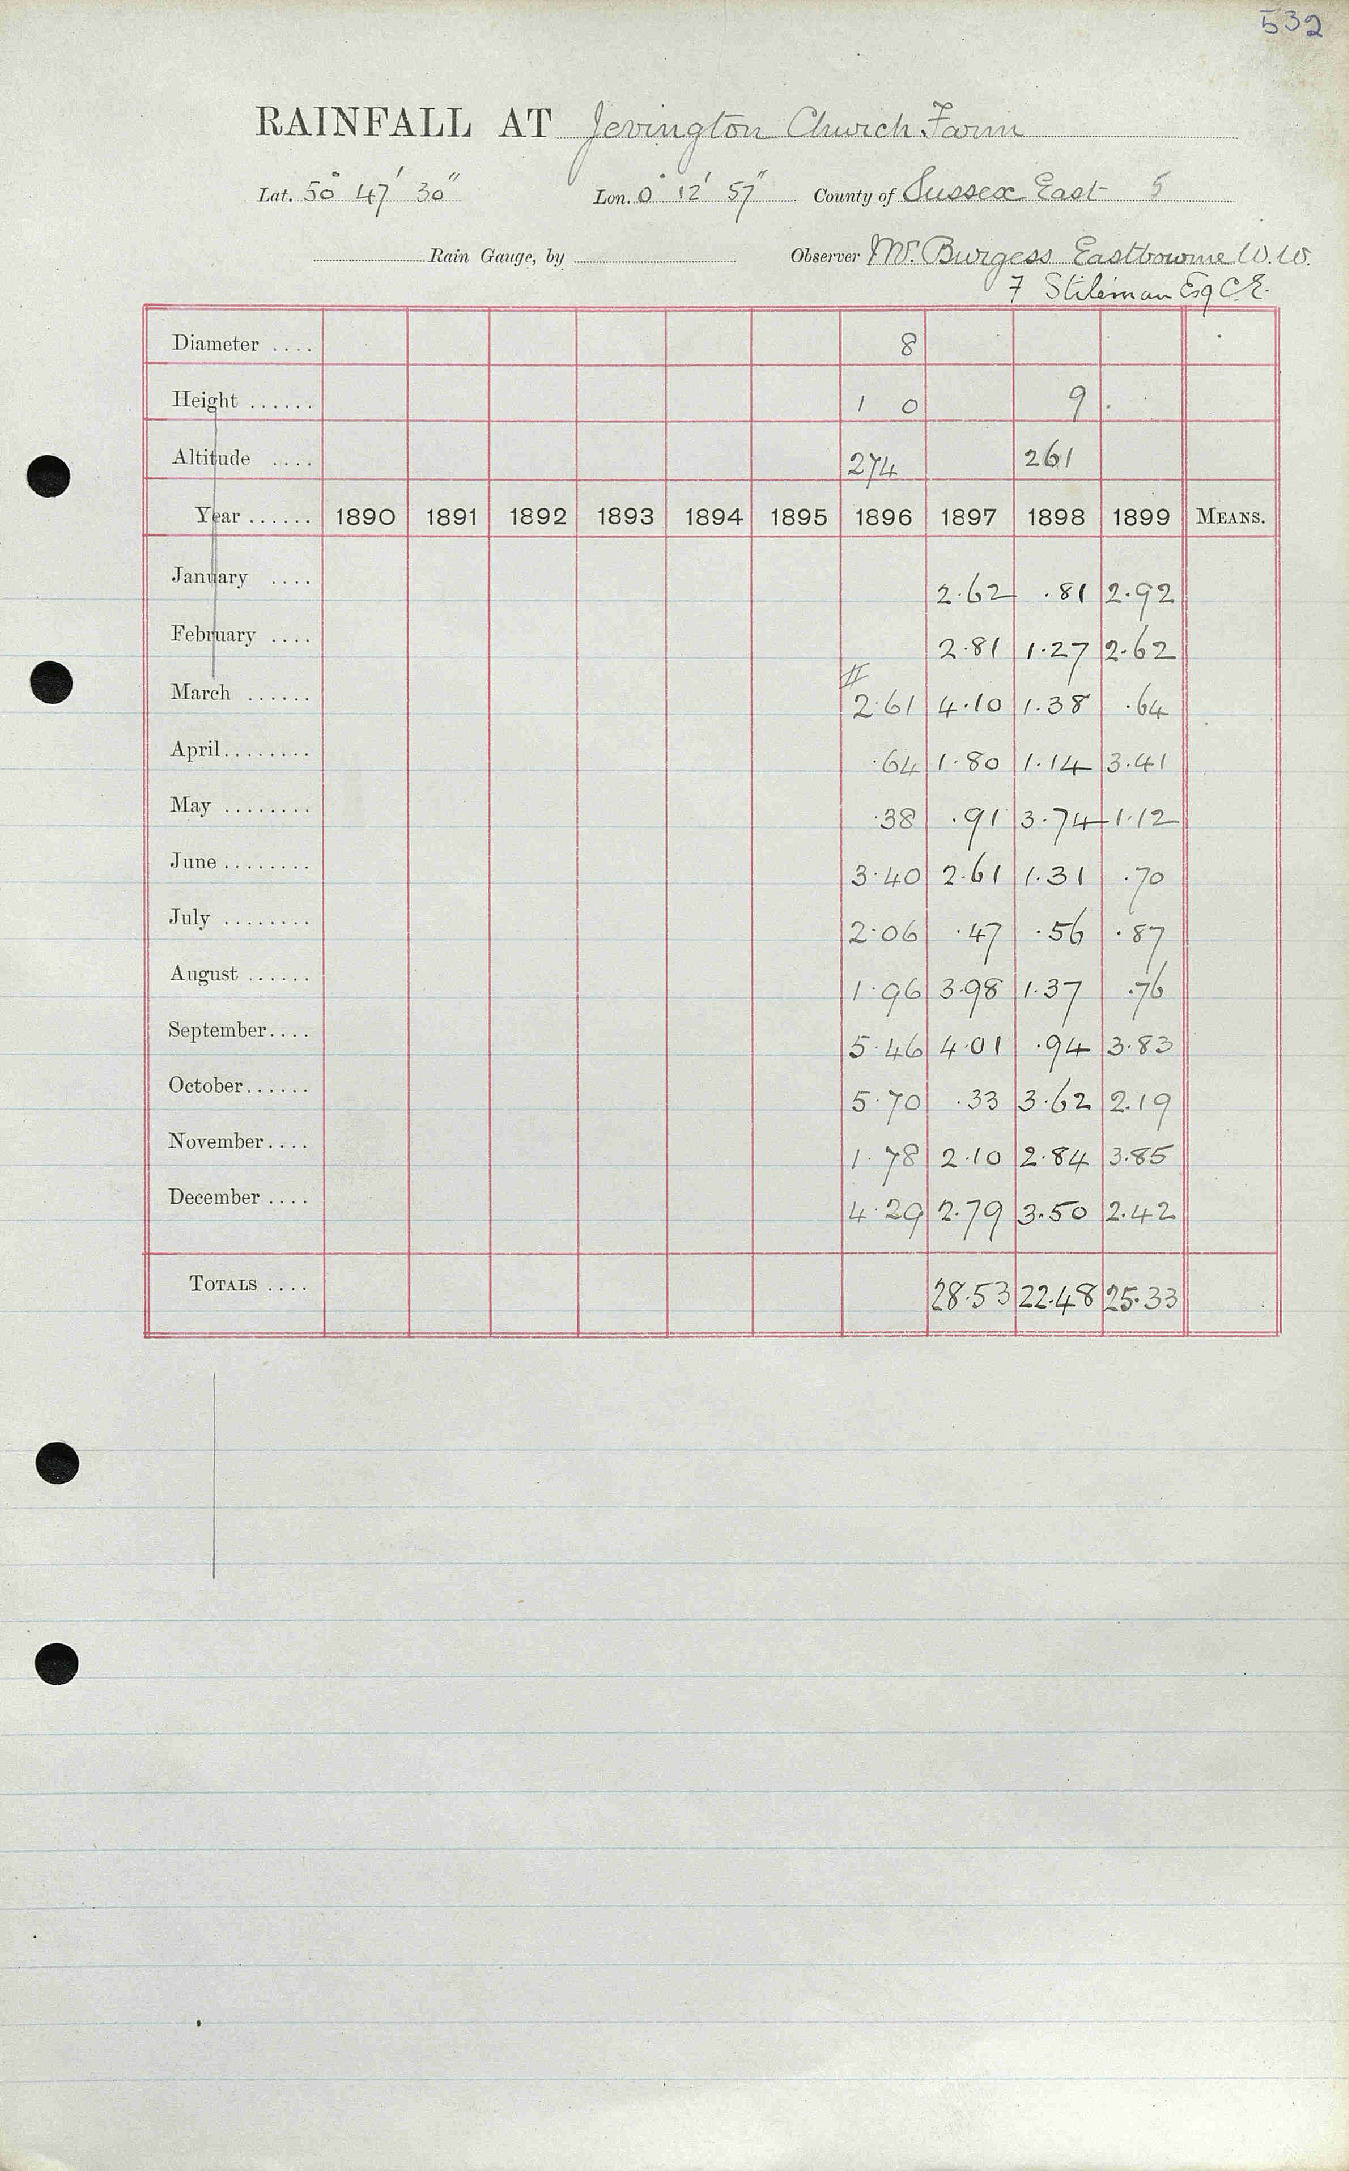 532
RAINFALL AT Jevington Church Farm
Lat. 50° 47' 30" Lon. 0° 12' 57" County of Sussex East 5
Rain Gauge, by Observer Mr. Burgess Eastbourne W.W.
F Stileman Esq C.E.
Diameter .... 8
Height ...... 1 0 9
Altitude .... 274 261
Year ...... 1890 1891 1892 1893 1894 1895 1896 1897 1898 1899 MEANS.
January .... 2.62 .81 2.92
February .... 2.81 1.27 2.62
March ...... 2.61 4.10 1.38 .64
April........ .64 1.80 1.14 3.41
May ........ .38 .91 3.74 1.12
June ........ 3.40 2.61 1.31 .70
July ........ 2.06 .47 .56 .87
August ...... 1.96 3.98 1.37 .76
September.... 5.46 4.01 .94 3.83
October...... 5.70 .33 3.62 2.19
November.... 1.78 2.10 2.84 3.85
December .... 4.29 2.79 3.50 2.42
TOTALS .... 28.53 22.48 25.33